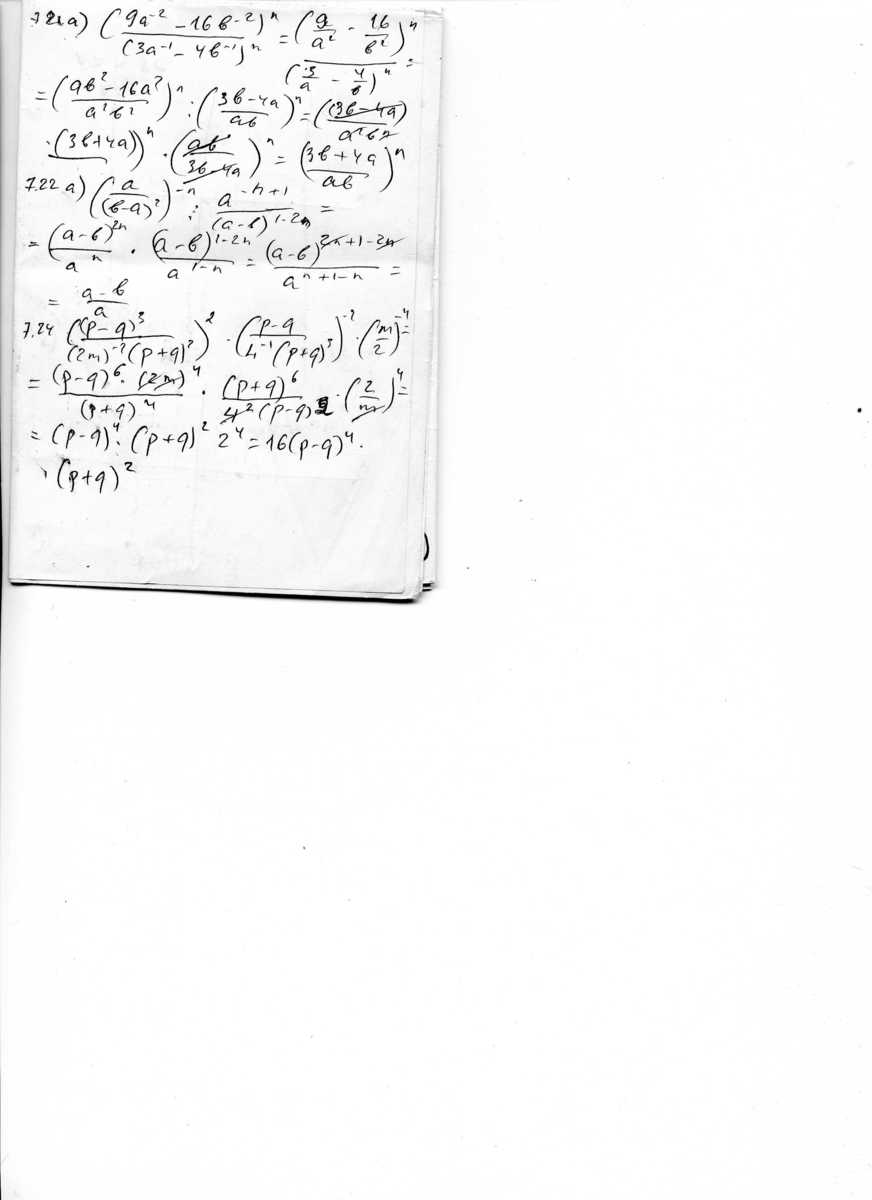 7.21 a) (9a⁻² - 16в⁻²)ⁿ / (3a⁻¹ - 4в⁻¹)ⁿ = (9/a² - 16/в²)ⁿ / (3/a - 4/в)ⁿ =
= ((9в² - 16a²)/(a²в²))ⁿ : ((3в - 4a)/(aв))ⁿ = (((3в - 4a)
·(3в + 4a))/(a²в²))ⁿ · (aв/(3в - 4a))ⁿ = ((3в + 4a)/(aв))ⁿ
7.22 a) (a/(в-a)²)⁻ⁿ : a⁻ⁿ⁺¹/(a-в)¹⁻²ⁿ =
= (a-в)²ⁿ/aⁿ · (a-в)¹⁻²ⁿ/a¹⁻ⁿ = (a-в)²ⁿ⁺¹⁻²ⁿ/aⁿ⁺¹⁻ⁿ =
= (a-в)/a
7.24 ((p-q)³/((2m)⁻²(p+q)²))² · ((p-q)/(4⁻¹(p+q)³))⁻² · (m/2)⁻⁴ =
= (p-q)⁶·(2m)⁴/(p+q)⁴ · (p+q)⁶/(4²(p-q)²) · (2/m)⁴ =
= (p-q)⁴·(p+q)² 2⁴ = 16(p-q)⁴·
·(p+q)²